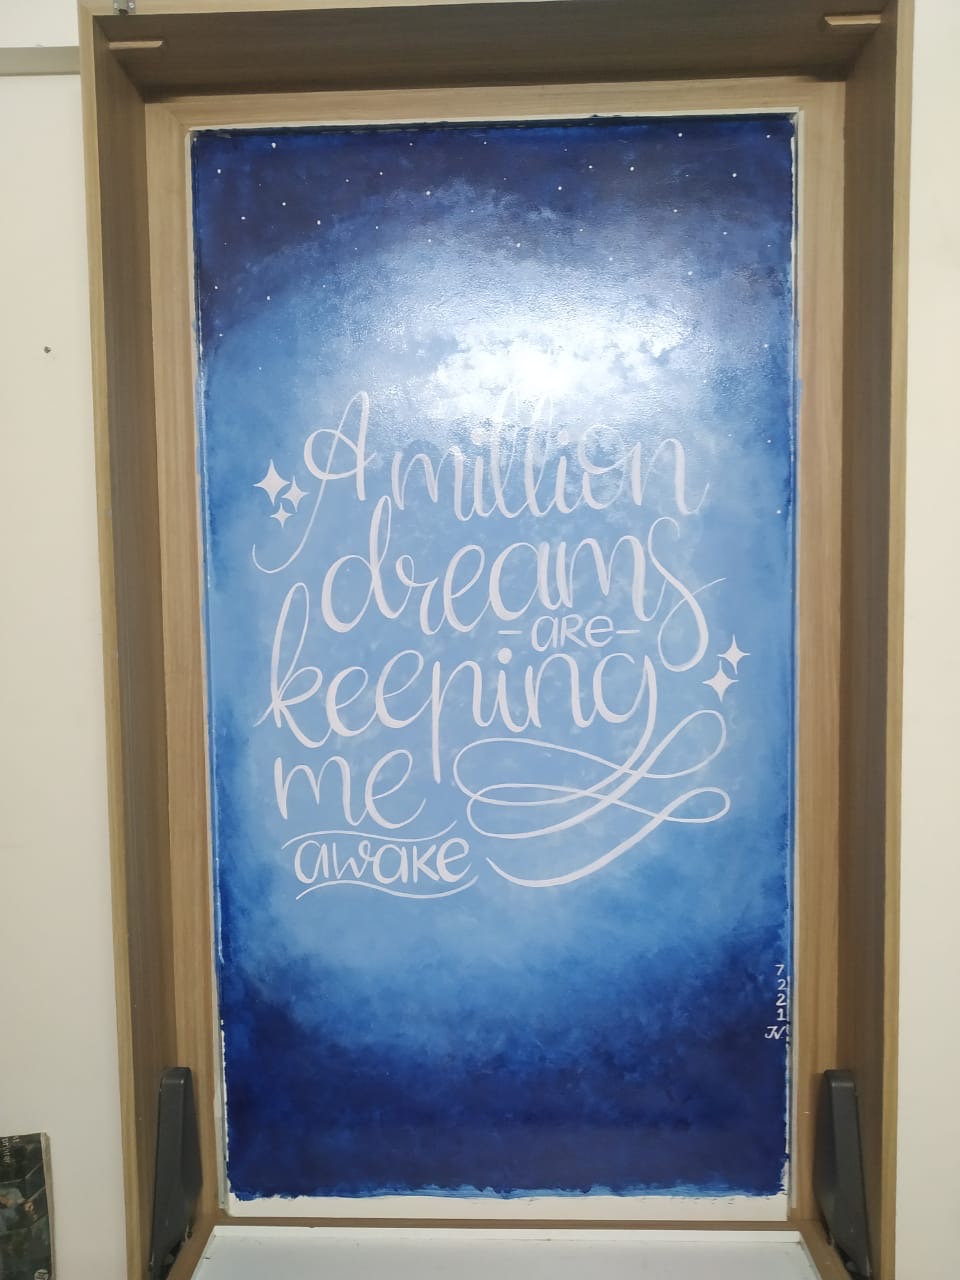 A million
dreams
-are-
keeping
me
awake
7
2
2
1
JV